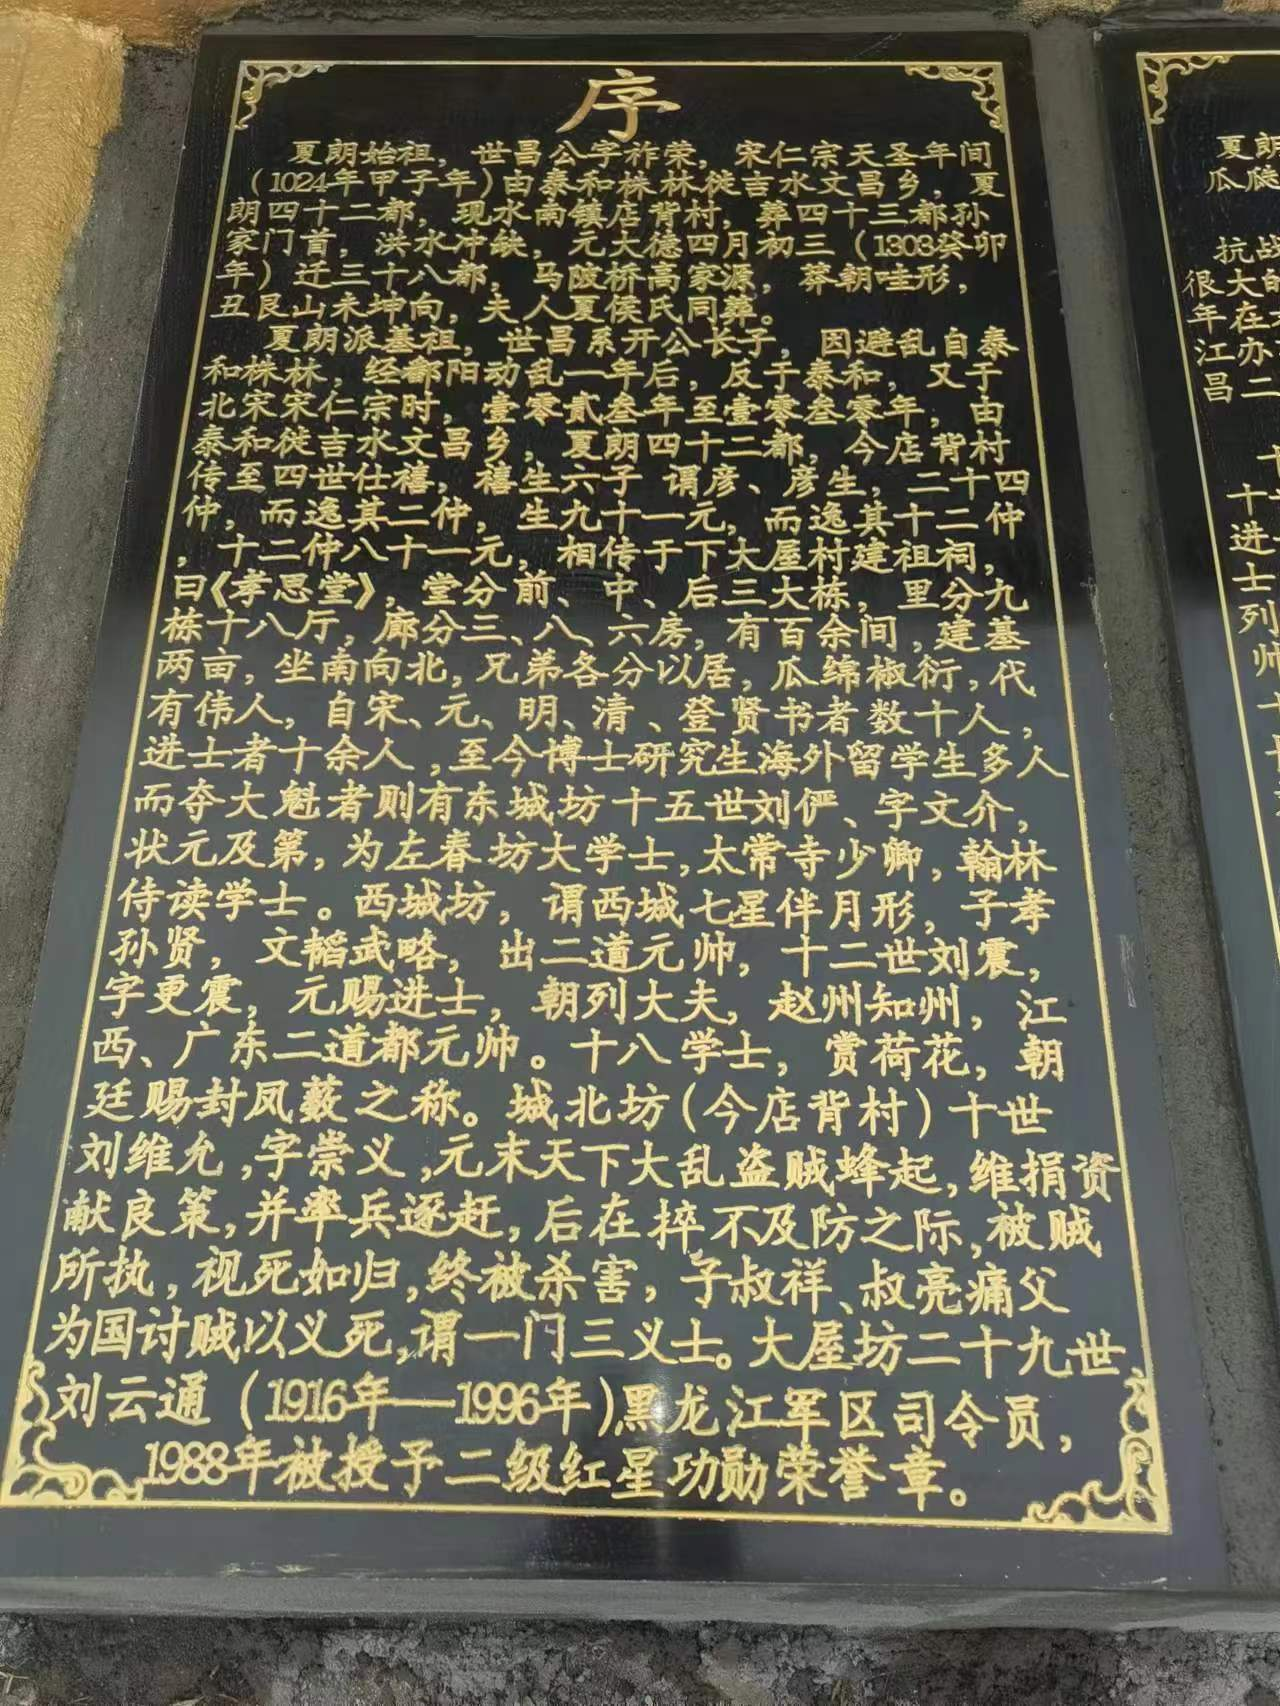 序
夏朗始祖，世昌公字祚荣，宋仁宗天圣年间
（1024年甲子年）由泰和株林徙吉水文昌乡，夏
朗四十二都，现水南镇店背村，葬四十三都孙
家门首，洪水冲缺，元大德四月初三（1303癸卯
年）迁三十八都，马陂桥高家源，葬朝哇形，
丑艮山未坤向，夫人夏侯氏同葬。
夏朗派基祖，世昌系开公长子，因避乱自泰
和株林，经鄱阳动乱一年后，反于泰和，又于
北宋宋仁宗时，壹零贰叁年至壹零叁零年，由
泰和徙吉水文昌乡，夏朗四十二都，今店背村
传至四世仕禧，禧生六子 谓彦、彦生，二十四
仲，而逸其二仲，生九十一元，而逸其十二仲
，十二仲八十一元，相传于下大屋村建祖祠，
曰《孝思堂》，堂分前、中、后三大栋，里分九
栋十八厅，廊分三、八、六房，有百余间，建基
两亩，坐南向北，兄弟各分以居，瓜绵椒衍，代
有伟人，自宋、元、明、清、登贤书者数十人，
进士者十余人，至今博士研究生海外留学生多人
而夺大魁者则有东城坊十五世刘俨、字文介，
状元及第，为左春坊大学士，太常寺少卿，翰林
侍读学士。西城坊，谓西城七星伴月形，子孝
孙贤，文韬武略，出二道元帅，十二世刘震，
字更震，元赐进士，朝列大夫，赵州知州，江
西、广东二道都元帅。十八学士，赏荷花，朝
廷赐封凤薮之称。城北坊（今店背村）十世
刘维允，字崇义，元末天下大乱盗贼蜂起，维捐资
献良策，并率兵逐赶，后在捽不及防之际，被贼
所执，视死如归，终被杀害，子叔祥、叔亮痛父
为国讨贼以义死，谓一门三义士。大屋坊二十九世
刘云通（1916年—1996年）黑龙江军区司令员，
1988年被授予二级红星功勋荣誉章。
夏朗
瓜
抗战
很大的
年在
江办
昌二
十
十
进
士
列
帅